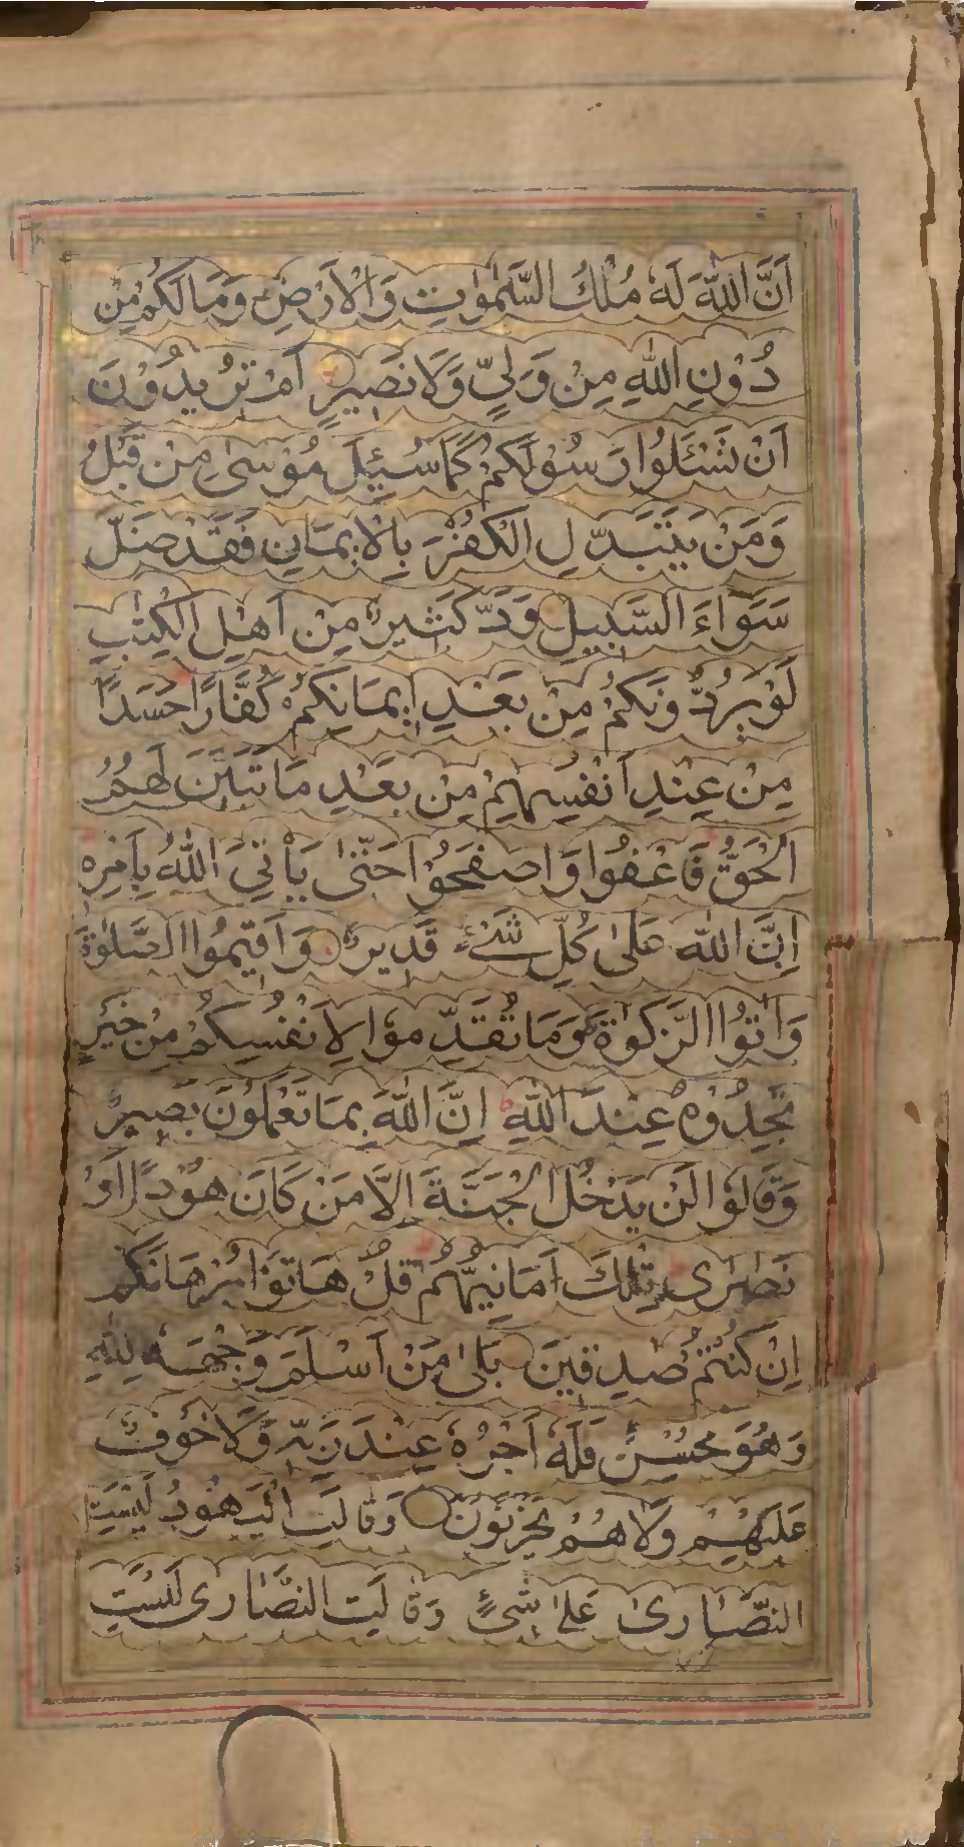 اَنَّ اللّٰهَ لَهٗ مُلْكُ السَّمٰوٰتِ وَالْاَرْضِ وَمَا لَكُمْ مِنْ
دُوْنِ اللّٰهِ مِنْ وَلِيٍّ وَلَا نَصِيْرٍ اَمْ تُرِيْدُوْنَ
اَنْ تَسْـَٔلُوا رَسُوْلَكُمْ كَمَا سُئِلَ مُوْسٰى مِنْ قَبْلُ
وَمَنْ يَتَبَدَّلِ الْكُفْرَ بِالْاِيْمَانِ فَقَدْ ضَلَّ
سَوَاءَ السَّبِيْلِ وَدَّ كَثِيْرٌ مِنْ اَهْلِ الْكِتٰبِ
لَوْ يَرُدُّوْنَكُمْ مِنْ بَعْدِ اِيْمَانِكُمْ كُفَّارًا حَسَدًا
مِنْ عِنْدِ اَنْفُسِهِمْ مِنْ بَعْدِ مَا تَبَيَّنَ لَهُمُ
الْحَقُّ فَاعْفُوا وَاصْفَحُوْا حَتّٰى يَاْتِيَ اللّٰهُ بِاَمْرِهٖ
اِنَّ اللّٰهَ عَلٰى كُلِّ شَيْءٍ قَدِيْرٌ وَاَقِيْمُوا الصَّلٰوةَ
وَاٰتُوا الزَّكٰوةَ وَمَا تُقَدِّمُوْا لِاَنْفُسِكُمْ مِنْ خَيْرٍ
تَجِدُوْهُ عِنْدَ اللّٰهِ اِنَّ اللّٰهَ بِمَا تَعْمَلُوْنَ بَصِيْرٌ
وَقَالُوْا لَنْ يَدْخُلَ الْجَنَّةَ اِلَّا مَنْ كَانَ هُوْدًا اَوْ
نَصٰرٰى تِلْكَ اَمَانِيُّهُمْ قُلْ هَاتُوْا بُرْهَانَكُمْ
اِنْ كُنْتُمْ صٰدِقِيْنَ بَلٰى مَنْ اَسْلَمَ وَجْهَهٗ لِلّٰهِ
وَهُوَ مُحْسِنٌ فَلَهٗ اَجْرُهٗ عِنْدَ رَبِّهٖ وَلَا خَوْفٌ
عَلَيْهِمْ وَلَا هُمْ يَحْزَنُوْنَ وَقَالَتِ الْيَهُوْدُ لَيْسَتِ
النَّصَارٰى عَلٰى شَيْءٍ وَقَالَتِ النَّصَارٰى لَيْسَتِ